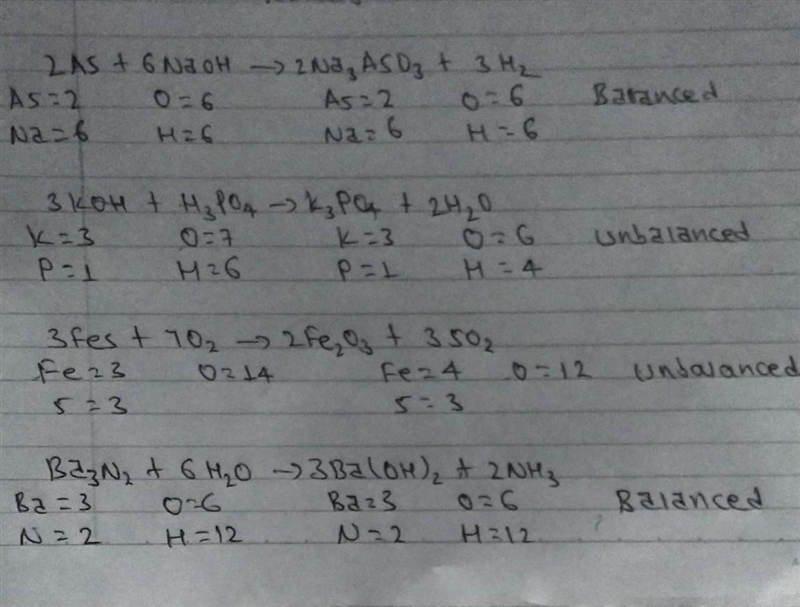 2As + 6NaOH → 2Na₃AsO₃ + 3H₂
As=2 O=6 As=2 O=6 Balanced
Na=6 H=6 Na=6 H=6
3KOH + H₃PO₄ → K₃PO₄ + 2H₂O
K=3 O=7 K=3 O=6 Unbalanced
P=1 H=6 P=1 H=4
3FeS + 7O₂ → 2Fe₂O₃ + 3SO₂
Fe=3 O=14 Fe=4 O=12 Unbalanced
S=3 S=3
Ba₃N₂ + 6H₂O → 3Ba(OH)₂ + 2NH₃
Ba=3 O=6 Ba=3 O=6 Balanced
N=2 H=12 N=2 H=12